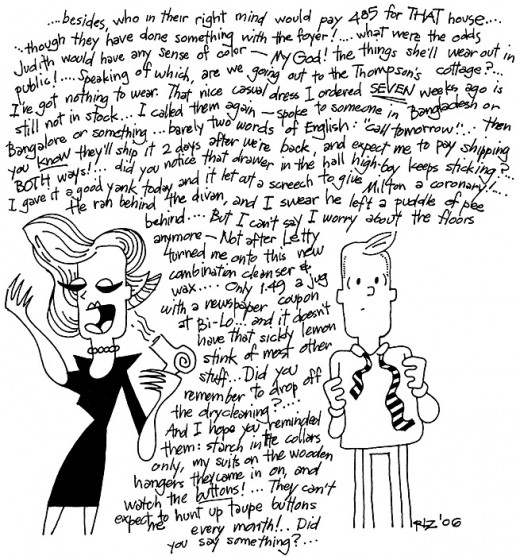 ....besides, who in their right mind would pay 485 for THAT house....
...though they have done something with the foyer!....what were the odds
Judith would have any sense of color — My God! the things she'll wear out in
public!....Speaking of which, are we going out to the Thompson's cottage?...
I've got nothing to wear. That nice casual dress I ordered SEVEN weeks ago is
still not in stock... I called them again — spoke to someone in Bangladesh or
Bangalore or something...barely two words of English: "call tomorrow!.. then
you know they'll ship it 2 days after we're back, and expect me to pay shipping
BOTH ways!... did you notice that drawer in the hall high-boy keeps sticking?...
I gave it a good yank today and it let out a screech to give Milton a coronary!....
He ran behind the divan, and I swear he left a puddle of pee
behind.... But I can't say I worry about the floors
anymore — Not after Letty
turned me onto this new
combination cleanser &
wax.... Only 1.49 a jug
with a newspaper coupon
at Bi-Lo...and it doesn't
have that sickly lemon
stink of most other
stuff...Did you
remember to drop off
the drycleaning?....
And I hope you reminded
them: starch in the collars
only, my suits on the wooden
hangers they came in on, and
watch the buttons!... They can't
expect me to hunt up taupe buttons
every month!.. Did
you say something?...
RIZ '06